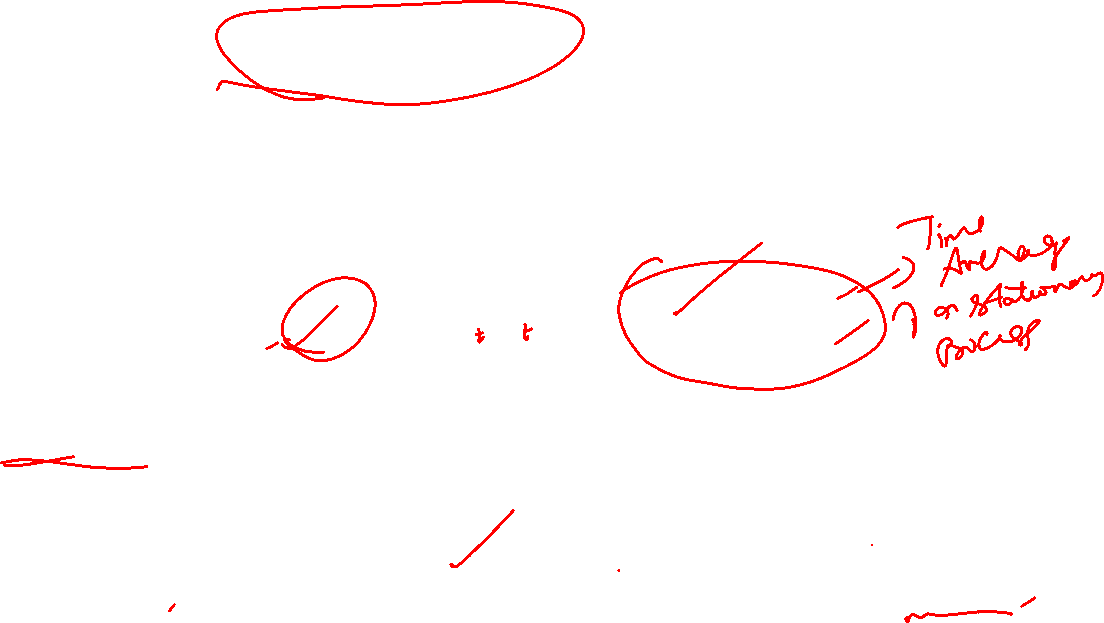 t t
Time
Average
on stationary
process